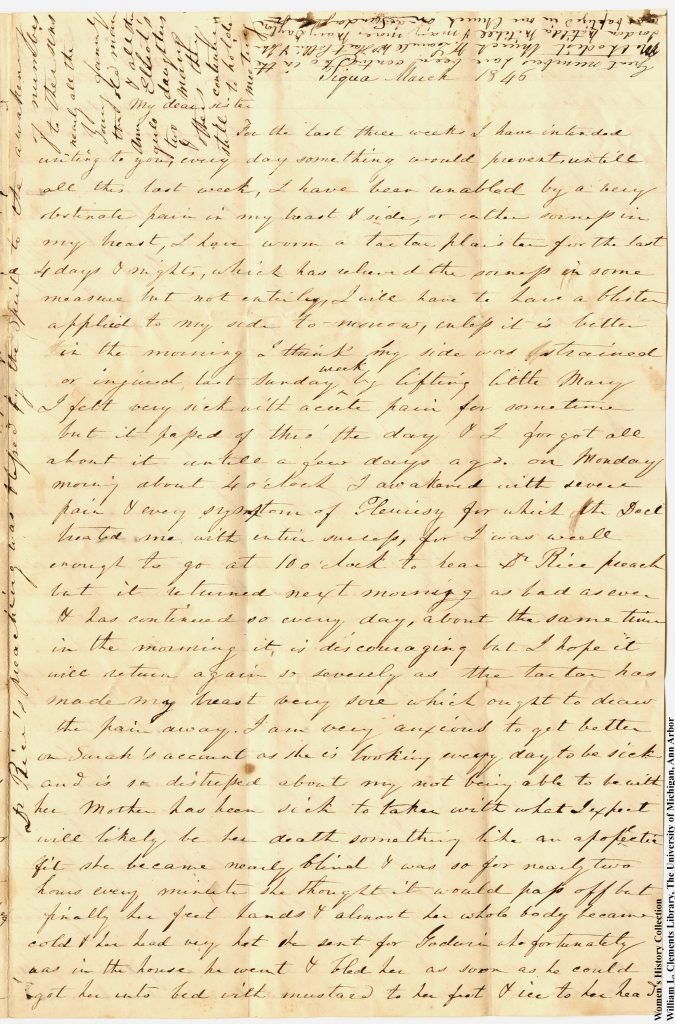 Piqua March 1846
My dear sister
For the last three weeks I have intended
writing to you, every day something would prevent, untill
all this last week, I have been unabled by a very
obstinate pain in my breast & side, or rather soreness in
my breast, I have worn a tartar plaister for the last
4 days & nights, which has relieved the soreness in some
measure but not entirley, I will have to have a blister
applied to my side to-morrow, unless it is better
in the morning I think my side was strained
or injured last sunday week by lifting little Mary
I felt very sick with accute pain for sometime
but it passed of thro' the day & I forgot all
about it untill a few days ago. on Monday
morning about 4 o'clock I awakened with severe
pain & every symptom of Pleurisy for which the Doct
treated me with entire success, for I was well
enough to go at 10 o'clock to hear Dr Rice preach
but it returned next morning as bad as ever
& has continued so every day, about the same time
in the morning it is discouraging but I hope it
will return again so severely as the tartar has
made my breast very sore which ought to draw
the pain away. I am very anxious to get better
on Sarah's account as she is looking every day to be sick
and is so distressed about my not being able to be with
her Mother has been sick to taken with what I expect
will likely be her death something like an apoplectic
fit she became nearly blind & was so for nearly two
hours every minute she thought it would pass off but
finally her feet hands & almost her whole body became
cold & her head very hot she sent for Godwin who fortunately
was in the house he went & bled her as soon as he could
got her into bed with mustard to her feet & ice to her head
Dr Rice's preaching was blessed by the Spirit to the awakening
of numbers
to their sins
nearly all the
family
that old man
Ann & all the
Elliot's
two daughters
& many
others
still continue
to hold
meeting
Great members have been
Methodist Church
baptized in our Church on
Women's History Collection
William L. Clements Library, The University of Michigan, Ann Arbor